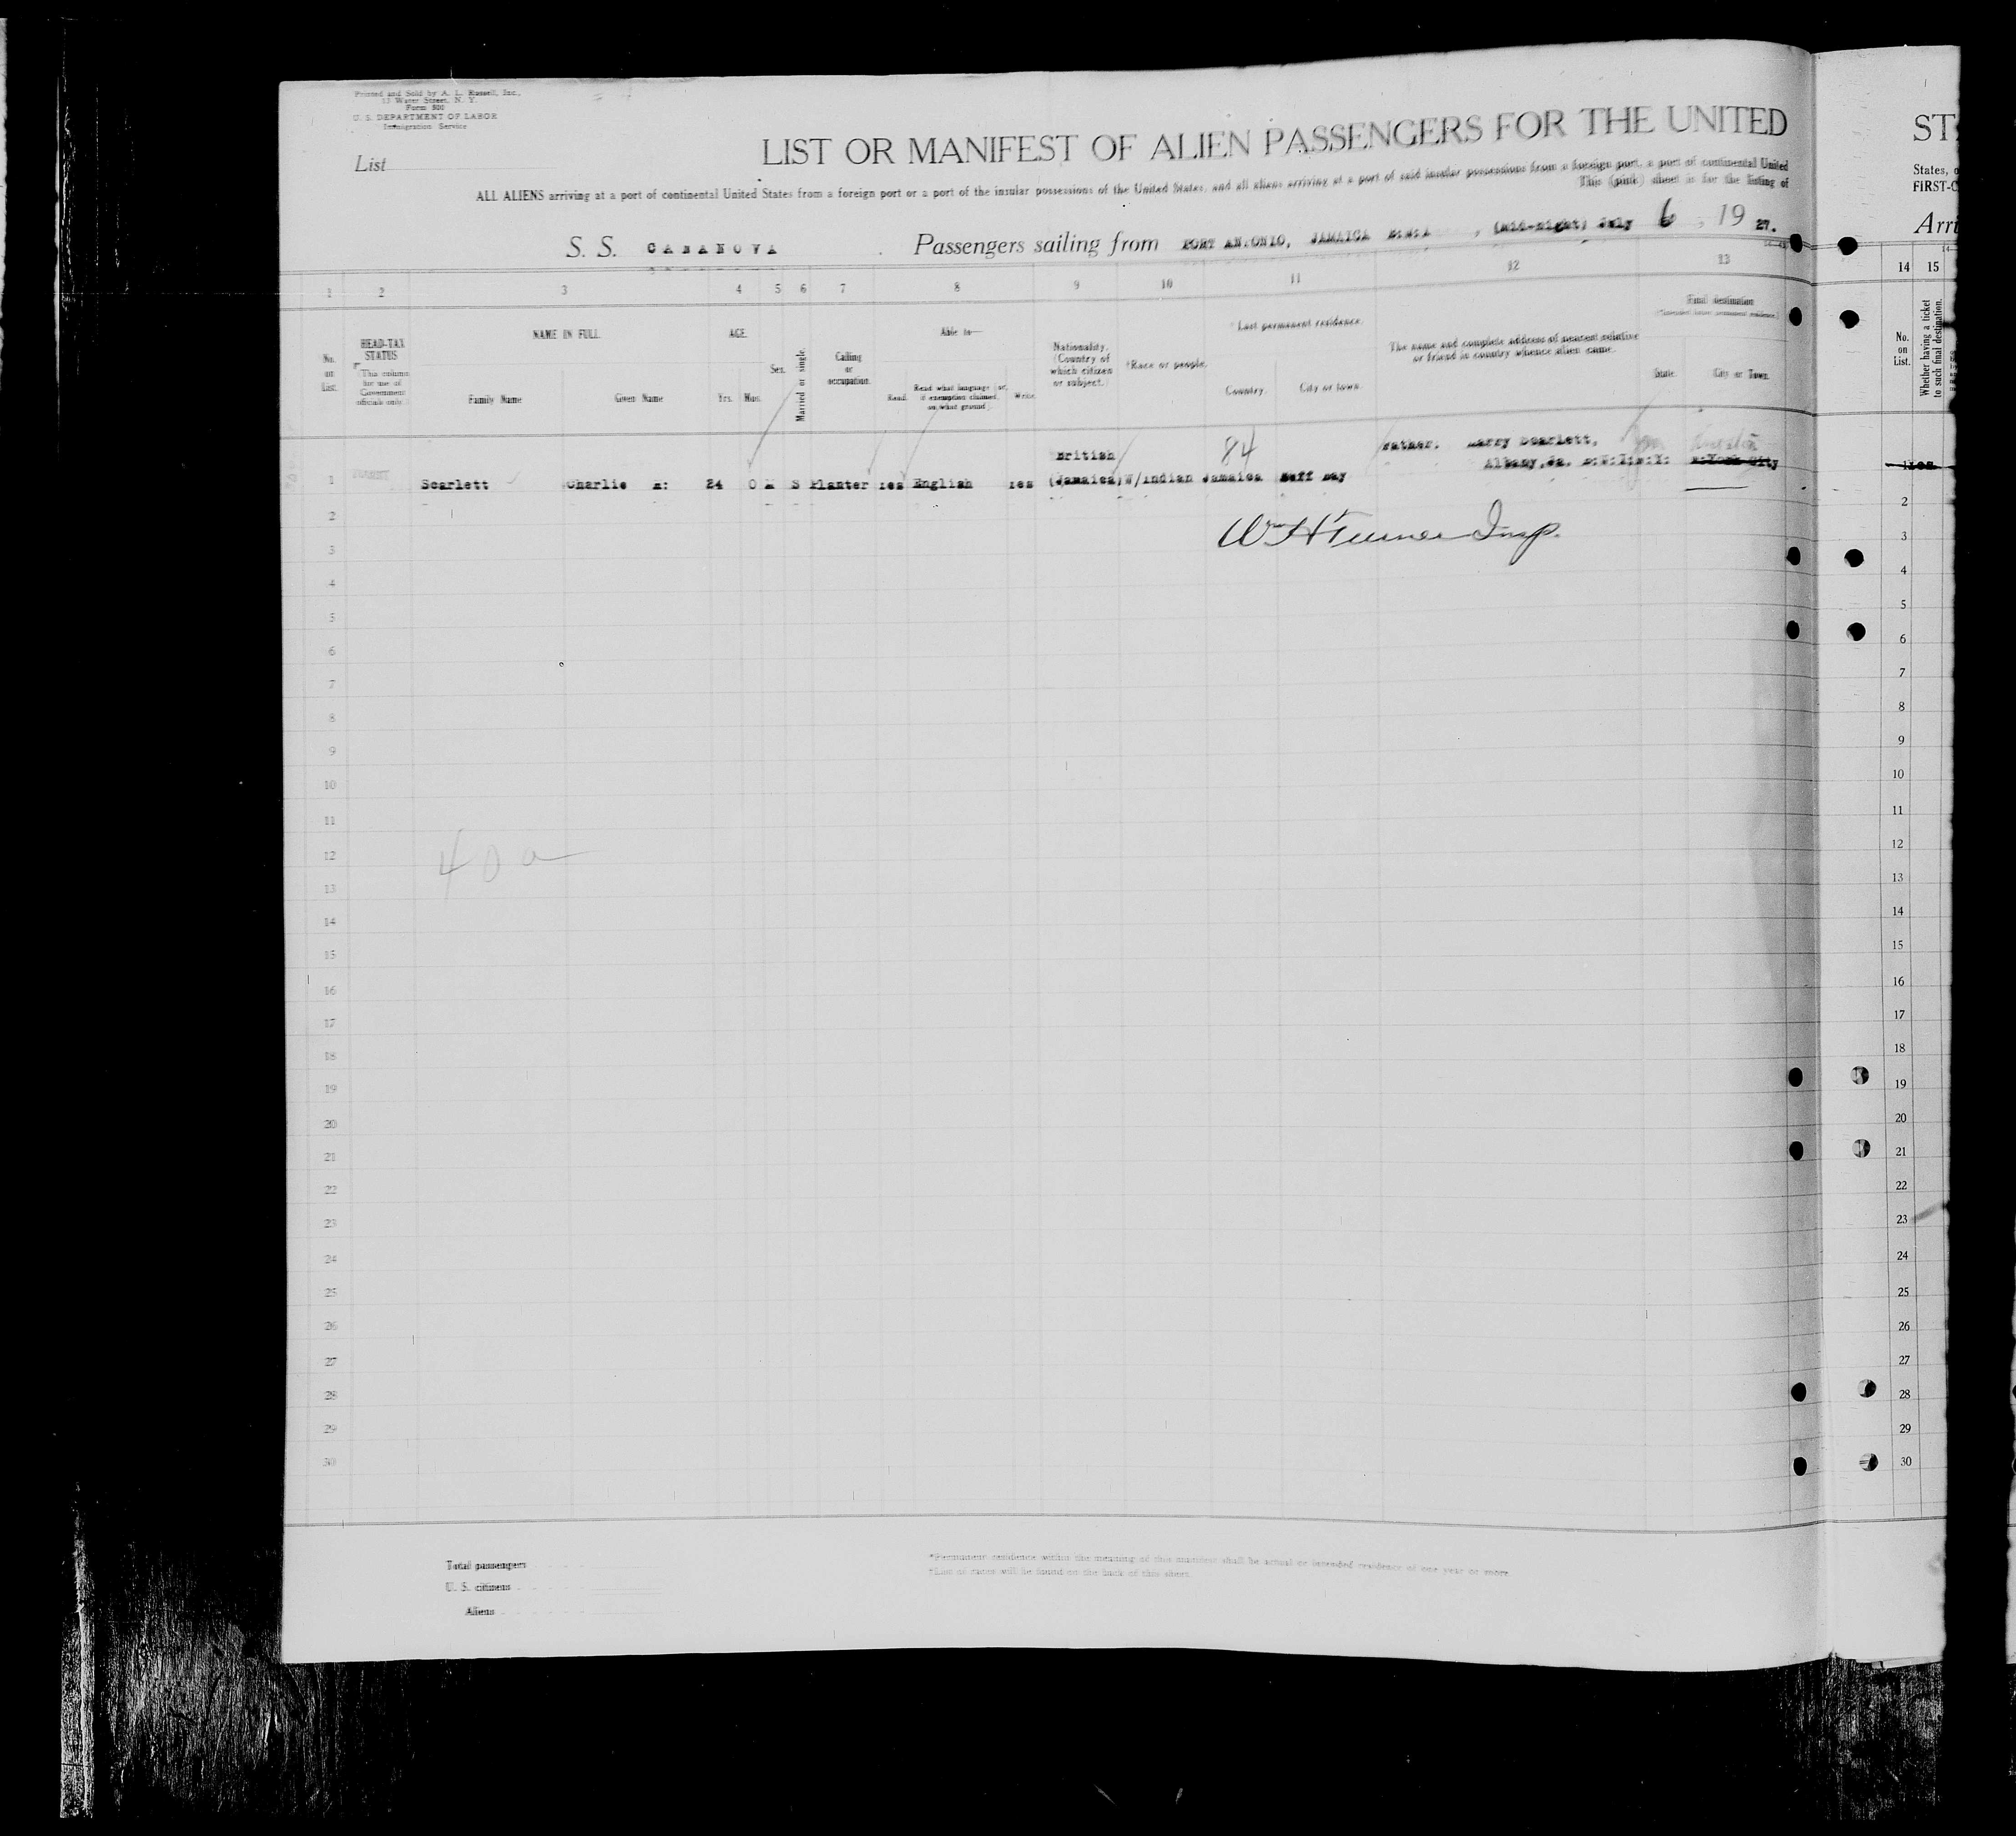 Printed and Sold by A. L. Russell, Inc.,
13 Water Street, N. Y.
Form 500
U. S. DEPARTMENT OF LABOR
Immigration Service
List
LIST OR MANIFEST OF ALIEN PASSENGERS FOR THE UNITED
ALL ALIENS arriving at a port of continental United States from a foreign port or a port of the insular possessions of the United States, and all aliens arriving at a port of said insular possessions from a foreign port, a port of continental United
This (pink) sheet is for the listing of
S. S. CASANOVA Passengers sailing from PORT ANTONIO, JAMAICA B:W:I , (Mid-night) July 6 , 19 27.
1 2 3 4 5 6 7 8 9 10 11 12 13
No. on List.
HEAD-TAX STATUS
(This column for use of Government officials only.)
NAME IN FULL
Family Name Given Name
AGE.
Yrs. Mos.
Sex.
Married or single.
Calling or occupation.
Able to—
Read. Read what language (or, if exemption claimed, on what ground). Write.
Nationality. (Country of which citizen or subject.)
†Race or people.
*Last permanent residence.
Country. City or town.
The name and complete address of nearest relative or friend in country whence alien came.
Final destination
(*Intended future permanent residence.)
State. City or Town.
84
British Father: Harry Scarlett,
Albany, Ja. B:W:I: N:Y: N:York City
1 TRANSIT Scarlett Charlie 24 0 M S Planter Yes English Yes (Jamaica) W/Indian Jamaica Buff Bay
2
Wm H Turner Insp.
3
4
5
6
7
8
9
10
11
12
40a
13
14
15
16
17
18
19
20
21
22
23
24
25
26
27
28
29
30
Total passengers
U. S. citizens
Aliens
*Permanent residence within the meaning of this manifest shall be actual or intended residence of one year or more.
†List of races will be found on the back of this sheet.
ST
States, o
FIRST-C
Arri
14 15
No. on List.
Whether having a ticket to such final destination.
1 Yes
2
3
4
5
6
7
8
9
10
11
12
13
14
15
16
17
18
19
20
21
22
23
24
25
26
27
28
29
30